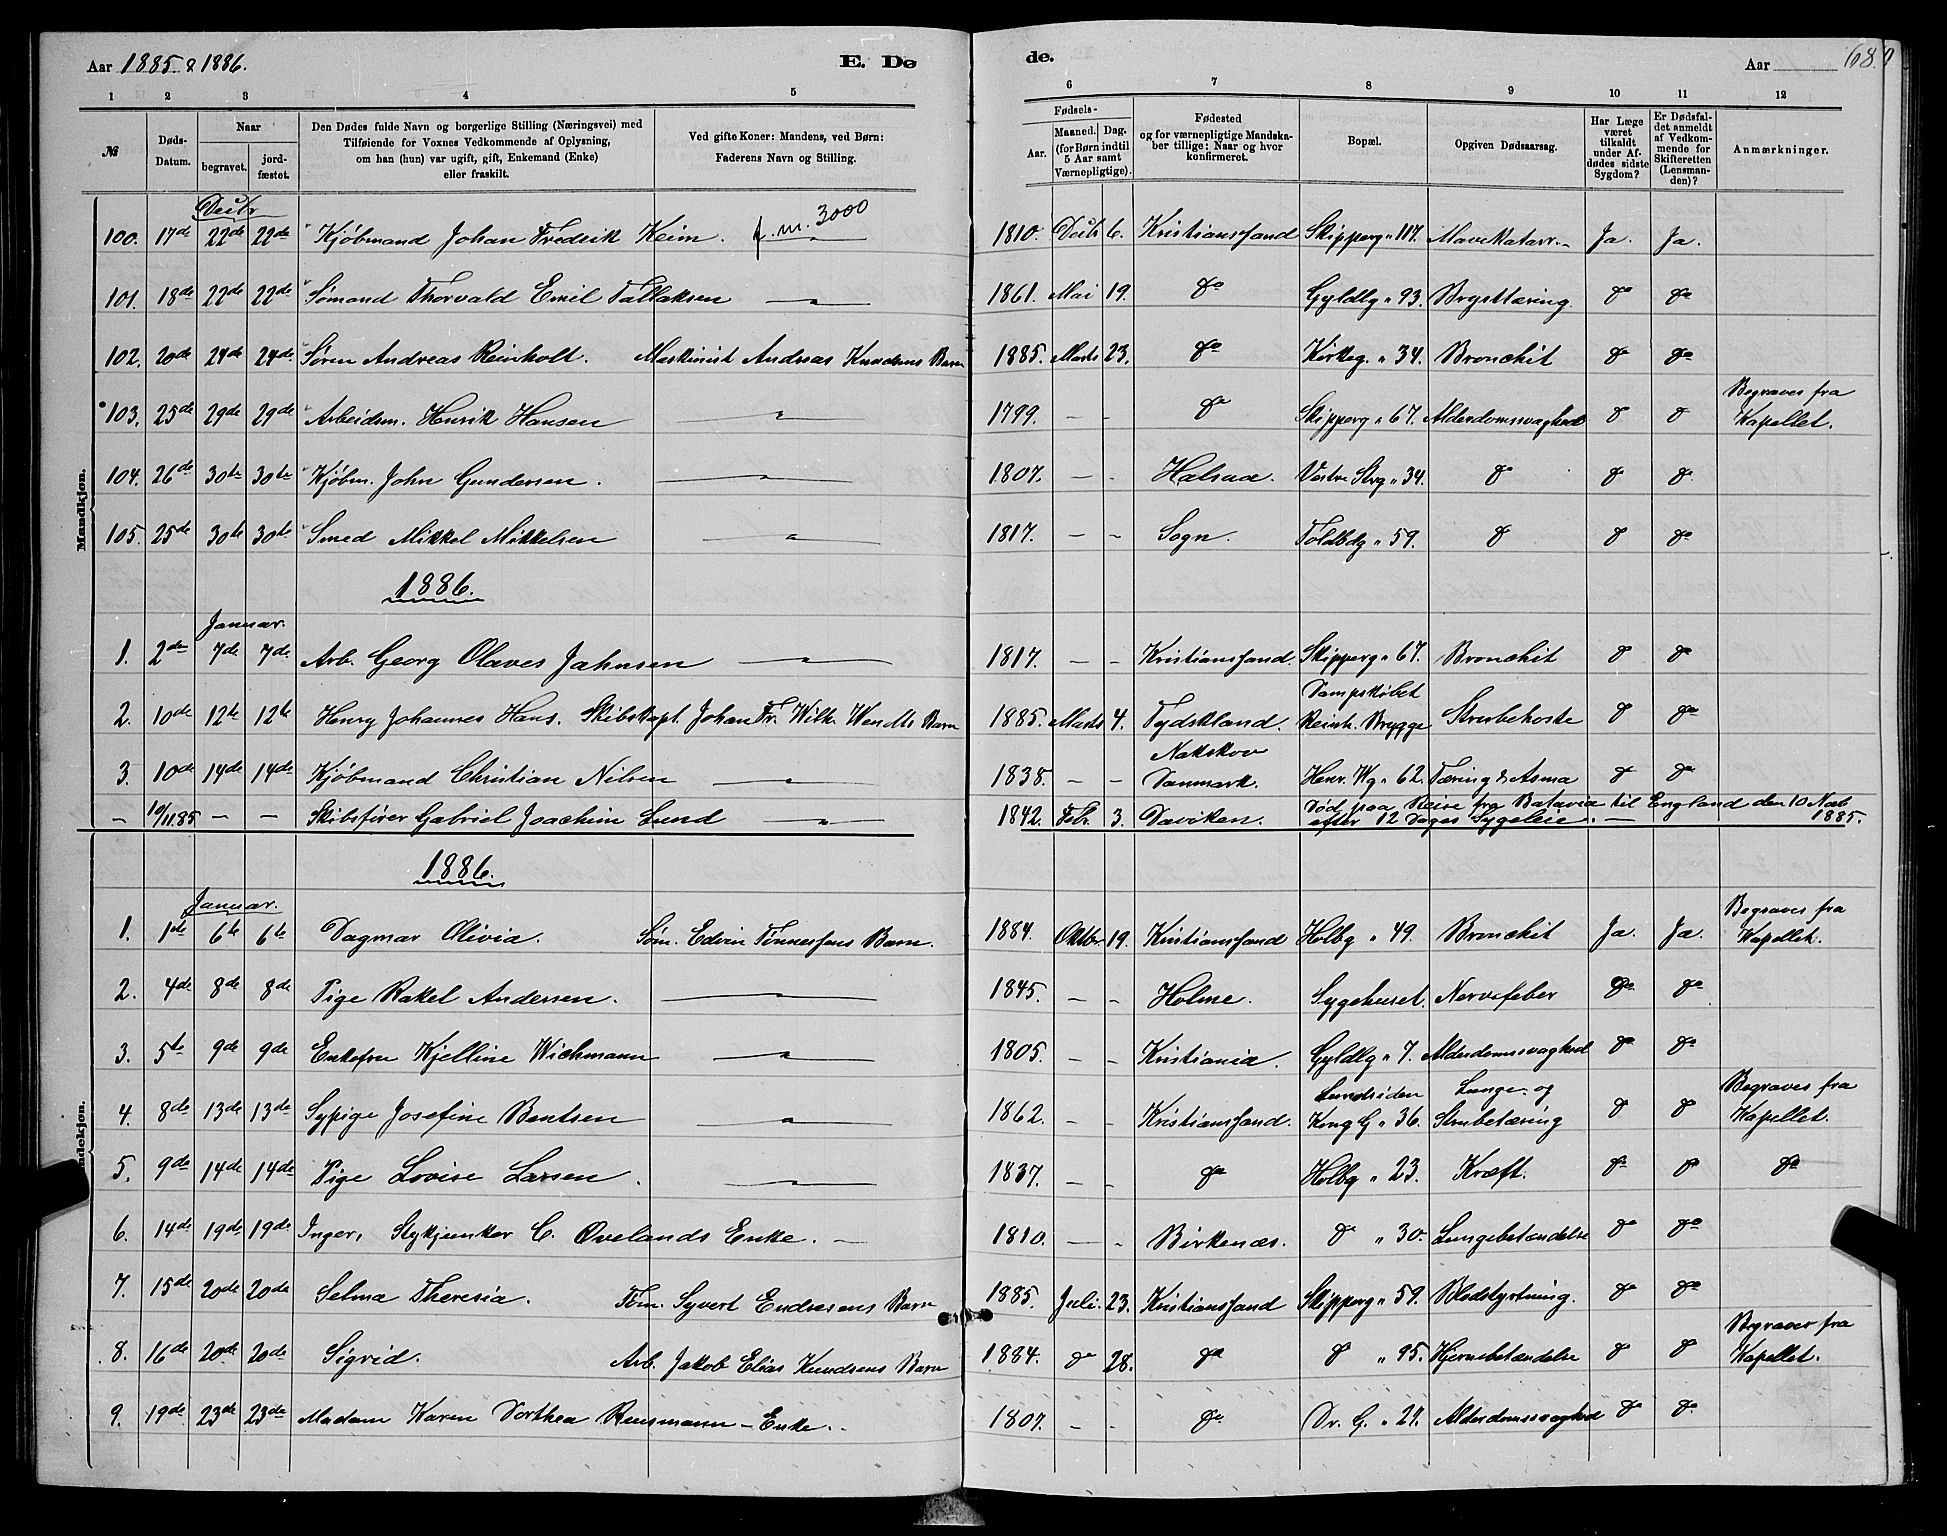 Aar 1885 & 1886. E. Dø de. Aar 68.
1 2 3 4 5 6 7 8 9 10 11 12
№ Døds-Datum. Naar begravet. jordfæstet. Den Dødes fulde Navn og borgerlige Stilling (Næringsvei) med Tilføiende for Voxnes Vedkommende af Oplysning, om han (hun) var ugift, gift, Enkemand (Enke) eller fraskilt. Ved gifte Koner: Mandens, ved Børn: Faderens Navn og Stilling. Fødsels- Aar. Maaned. Dag. (for Børn indtil 5 Aar samt Værnepligtige). Fødested og for værnepligtige Mandskaber tillige: Naar og hvor konfirmeret. Bopæl. Opgiven Dødsaarsag. Har Læge været tilkaldt under Afdødes sidste Sygdom? Er Dødsfaldet anmeldt af Vedkommende for Skifteretten (Lensmanden)? Anmærkninger.
Mandkjøn.
Decbr
100. 17de 22de 22de Kjøbmand Johan Fredrik Keim. f. m. 3000 1810. Decbr 6. Kristianssand Skipperg " 117. Mavekatarr. Ja. Ja.
101. 18de 22de 22de Sømand Thorvald Emil Tallaksen — " — 1861. Mai 19. do Gyldlg " 93. Brysttæring. do do
102. 20de 24de 24de Søren Andreas Reinholt. Maskinist Andreas Knudsens Barn 1885. Marts 23. do Kirkeg. " 34. Bronchit do do
103. 25de 29de 29de Arbeidsm. Henrik Hansen — " — 1799. — - do Skipperg " 67. Alderdomssvaghed do do Begraves fra Kapellet.
104. 26de 30te 30te Kjøbm. John Gundersen. — " — 1807. — - Halsaa. Vestre Strg " 34. do do do
105. 25de 30te 30te Smed Mikkel Mikkelsen — " — 1817. — - Sogn. Toldbdg " 59. do do do
1886.
Januar.
1. 2den 7de 7de Arb. Georg Olaves Jahnsen — " — 1817. — - Kristianssand. Skipperg " 67. Bronchit do do
2. 10de 12te 12te Henry Johannes Hans. Skibskapt. Johan Fr. Wilh. Wendts Barn 1885. Marts 4. Tydskland. Dampskibet Reinh. Brygge Strubehoste do do
3. 10de 14de 14de Kjøbmand Christian Nilsen — " — 1838. — - Nakskov Danmark. Henr. Wg " 62. Tæring & Asma do do
— 10/11.85 — — Skibsfører Gabriel Joachim Lund — " — 1842. Febr. 3. Daviken. Død paa Reise fra Batavia til England den 10 Novb 1885. efter 12 Dages Sygeleie. —
1886.
Januar.
1. 1ste 6te 6te Dagmar Olivia. Søm. Edvin Tønnessens Barn. 1884. Oktbr 19. Kristianssand Holbg " 49. Bronchit Ja. Ja. Begraves fra Kapellet.
2. 4de 8de 8de Pige Rakel Andersen. — " — 1845. — - Holme. Sygehuset. Nervefeber do do
3. 5te 9de 9de Enkefru Kjelline Wichmann — " — 1805. — - Kristiania. Gyldlg " 7. Alderdomssvaghed do do
4. 8de 13de 13de Sypige Josefine Bentsen — " — 1862. — - Kristianssand. Lundsiden Kong G " 36. Lunge- og Strubetæring do do Begraves fra Kapellet.
ndekjøn.
5. 9de 14de 14de Pige Lovise Larsen. — " — 1837. — - do Holbg " 23. Kræft. do do do
6. 14de 19de 19de Inger, Stykjunker C. Ovelands Enke. — 1810. — - Birkenæs. do " 30. Lungebetændelse do do
7. 15de 20de 20de Selma Theresia. Tøm. Syvert Endresens Barn 1885. Juli. 23. Kristianssand Skipperg " 59. Blodstyrtning. do do
8. 16de 20de 20de Sigrid. Arb. Jakob Elias Knudsens Barn 1884. do 28. do do " 95. Hjernebetændelse do do Begraves fra Kapellet.
9. 19de 23de 23de Madam Karen Dorthea Reusmann — Enke. - 1807. — - do Dr. G. " 27. Alderdomssvaghed do do